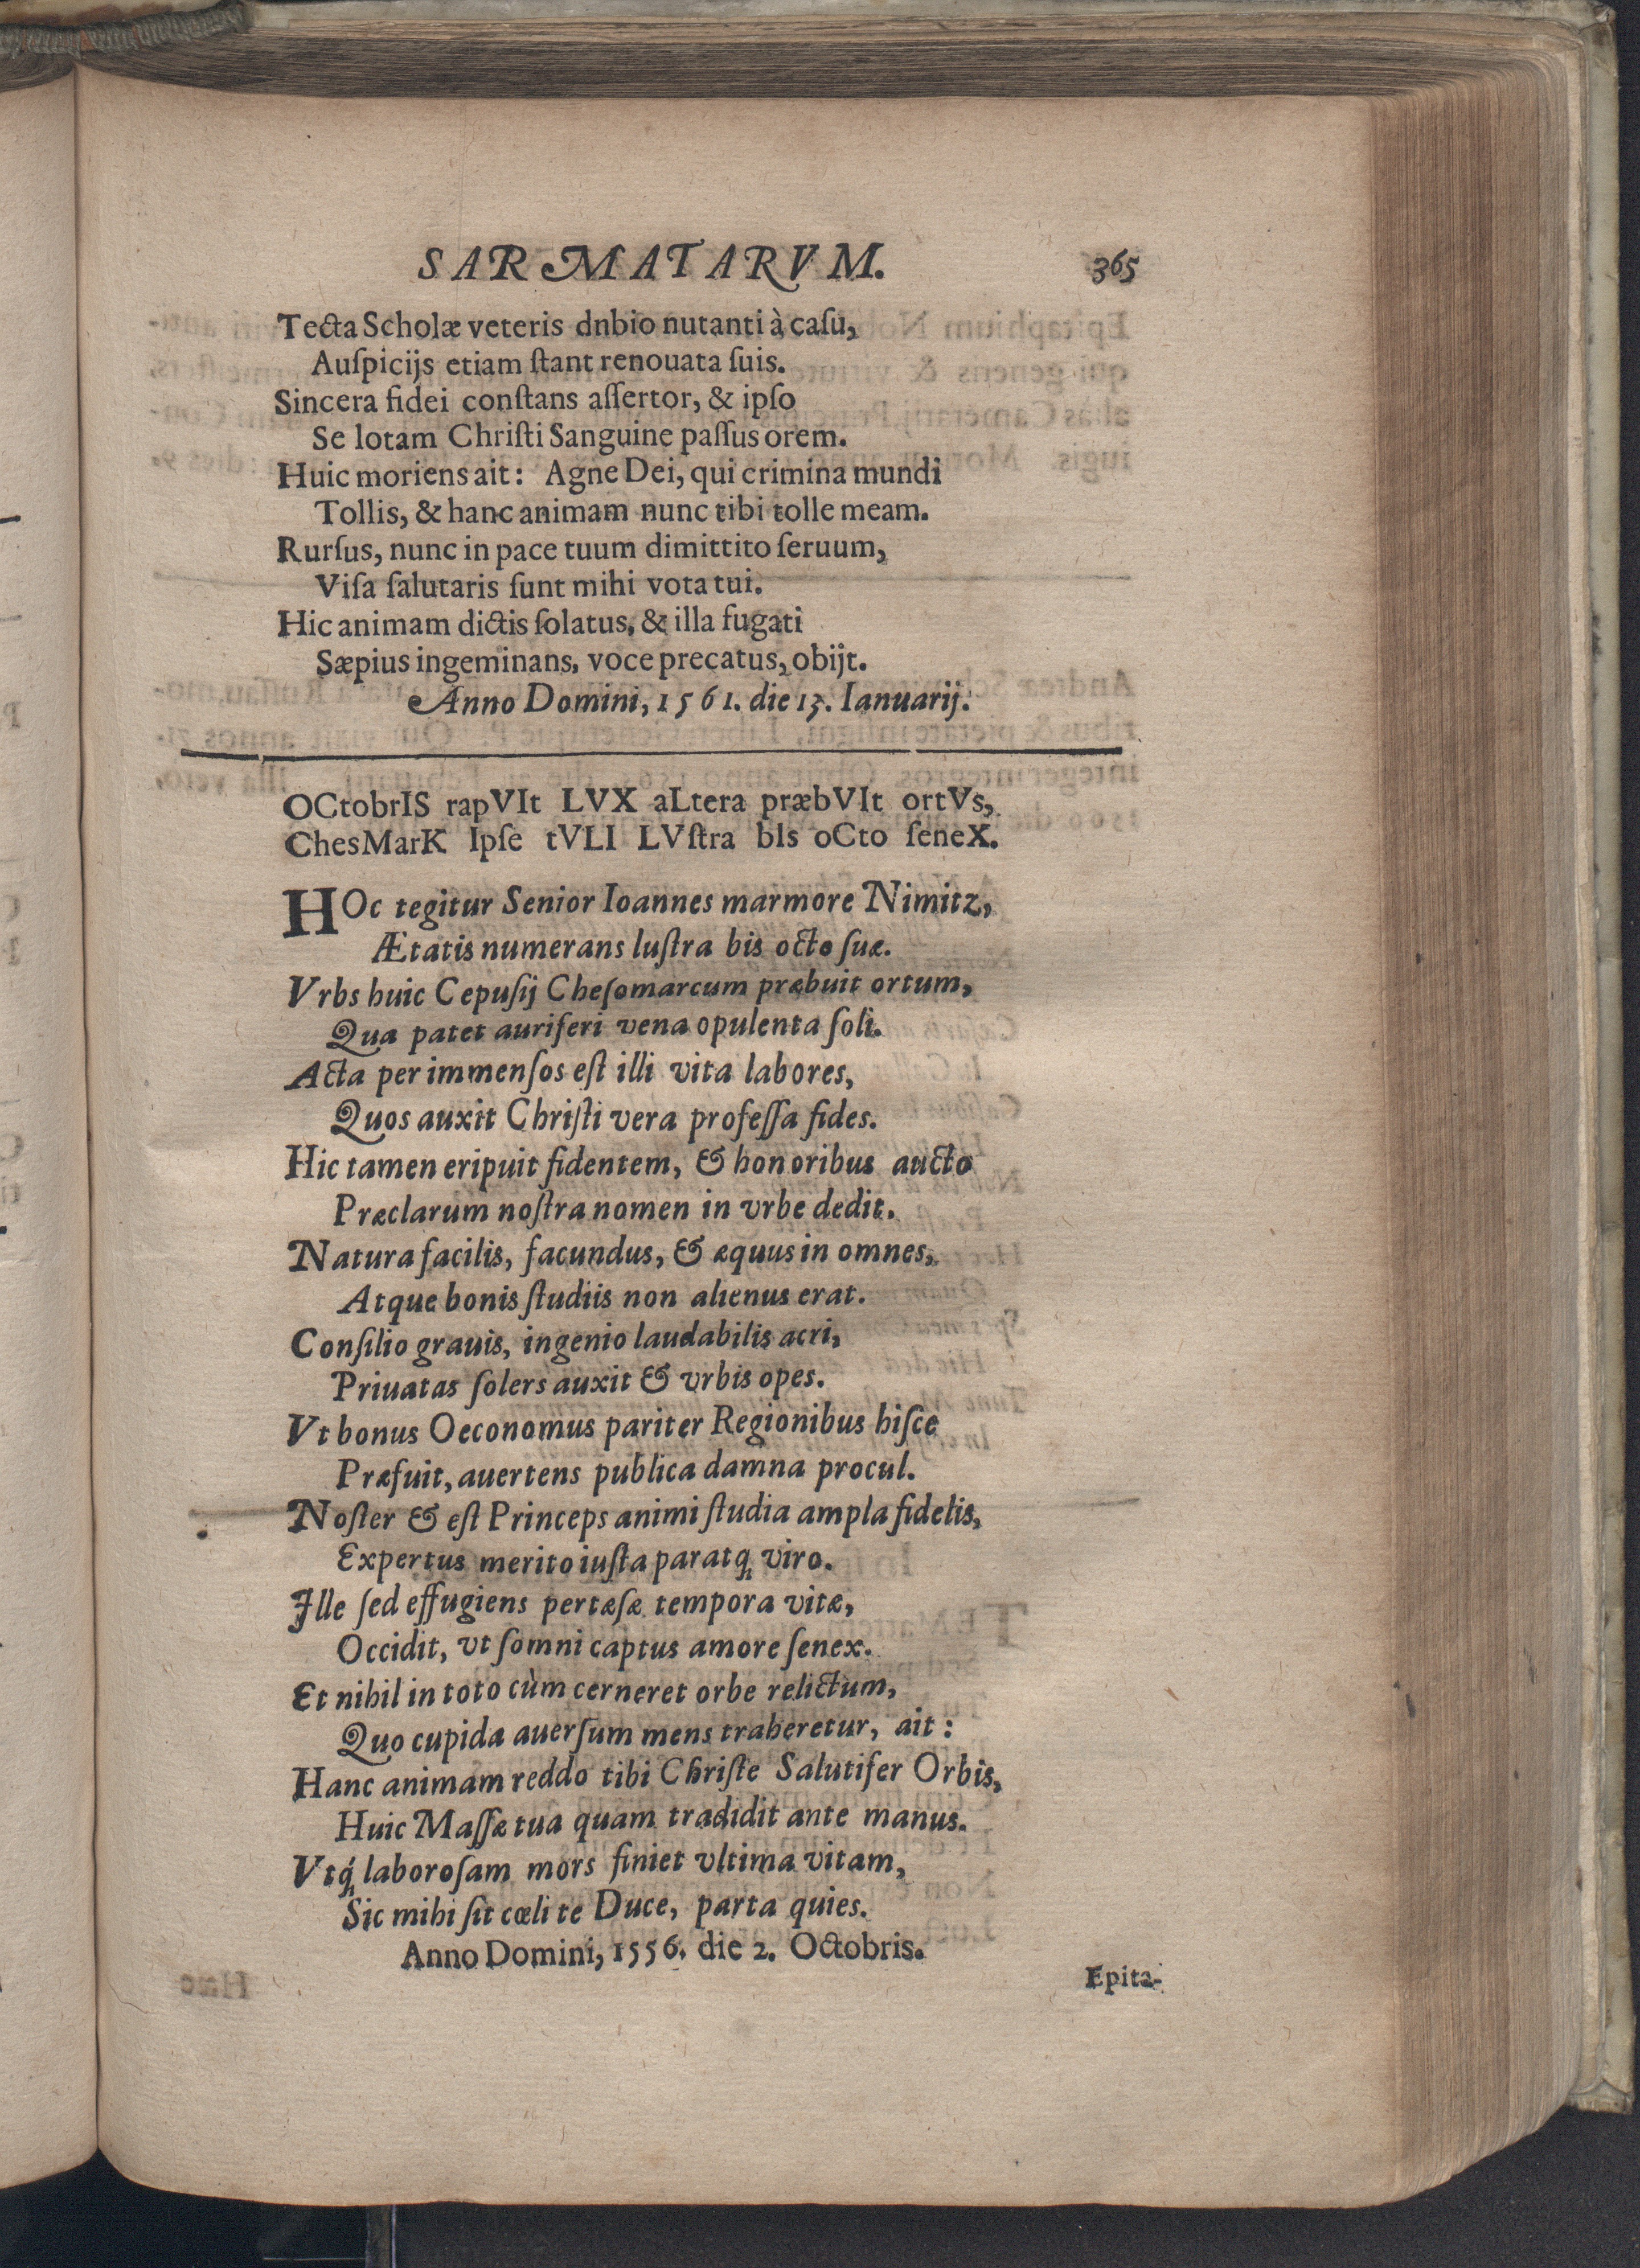 SARMATARVM. 365
Tecta Scholæ veteris dnbio nutanti à caſu,
Auſpicijs etiam ſtant renouata ſuis.
Sincera fidei conſtans aſſertor, & ipſo
Se lotam Chriſti Sanguine paſſus orem.
Huic moriens ait: Agne Dei, qui crimina mundi
Tollis, & hanc animam nunc tibi tolle meam.
Rurſus, nunc in pace tuum dimittito ſeruum,
Viſa ſalutaris ſunt mihi vota tui.
Hic animam dictis ſolatus, & illa fugati
Sæpius ingeminans, voce precatus, obijt.
Anno Domini, 1561. die 13. Ianuarij.
OCtobrIS rapVIt LVX aLtera præbVIt ortVs,
ChesMarK Ipſe tVLI LVſtra bIs oCto ſeneX.
HOc tegitur Senior Ioannes marmore Nimitz,
Ætatis numerans luſtra bis octo ſuæ.
Vrbs huic Cepuſij Cheſomarcum præbuit ortum,
Qua patet auriferi vena opulenta ſoli.
Acta per immenſos eſt illi vita labores,
Quos auxit Chriſti vera profeſſa fides.
Hic tamen eripuit fidentem, & honoribus aucto
Præclarum noſtra nomen in vrbe dedit.
Natura facilis, facundus, & æquus in omnes,
Atque bonis ſtudiis non alienus erat.
Conſilio grauis, ingenio laudabilis acri,
Priuatas ſolers auxit & vrbis opes.
Vt bonus Oeconomus pariter Regionibus hiſce
Præfuit, auertens publica damna procul.
Noſter & eſt Princeps animi ſtudia ampla fidelis,
Expertus merito iuſta paratq́; viro.
Ille ſed effugiens pertæſæ tempora vitæ,
Occidit, vt ſomni captus amore ſenex.
Et nihil in toto cùm cerneret orbe relictum,
Quo cupida auerſum mens traheretur, ait:
Hanc animam reddo tibi Chriſte Salutifer Orbis,
Huic Maſſæ tua quam tradidit ante manus.
Vtq́; laboroſam mors finiet vltima vitam,
Sic mihi ſit cœli te Duce, parta quies.
Anno Domini, 1556. die 2. Octobris.
Epita-